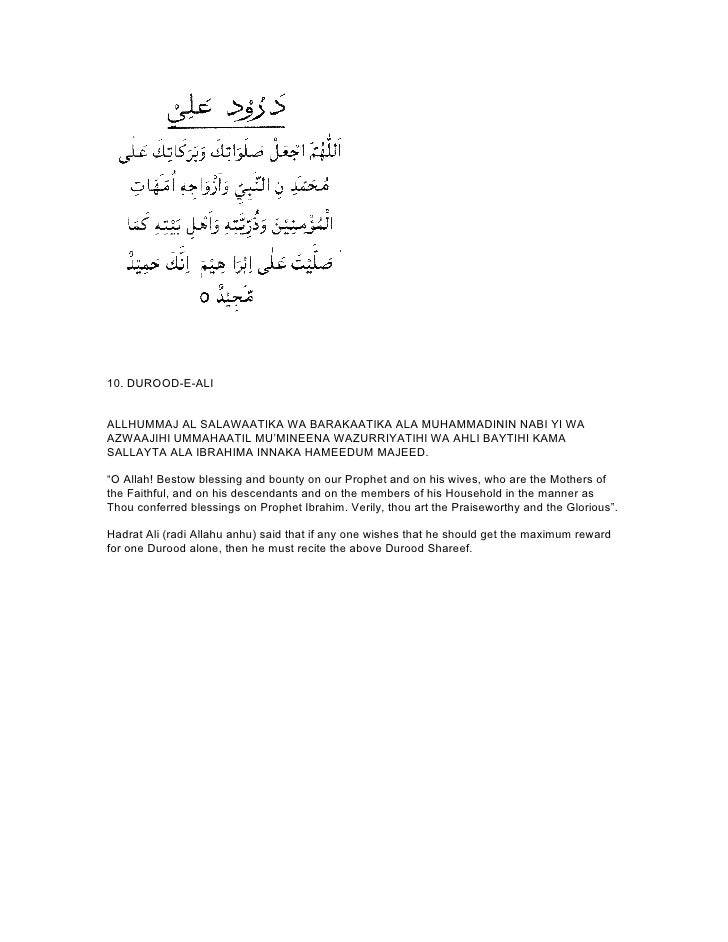 دَرُوْد عَلِيْ
اَللّٰهُمَّ اجْعَلْ صَلَوَاتِكَ وَبَرَكَاتِكَ عَلٰى
مُحَمَّدِ نِ النَّبِيِّ وَاَزْوَاجِهٖ اُمَّهَاتِ
الْمُؤْمِنِيْنَ وَذُرِّيَّتِهٖ وَاَهْلِ بَيْتِهٖ كَمَا
صَلَّيْتَ عَلٰى اِبْرَا هِيْمَ اِنَّكَ حَمِيْدٌ
مَّجِيْدٌ ○
10. DUROOD-E-ALI
ALLHUMMAJ AL SALAWAATIKA WA BARAKAATIKA ALA MUHAMMADININ NABI YI WA
AZWAAJIHI UMMAHAATIL MU’MINEENA WAZURRIYATIHI WA AHLI BAYTIHI KAMA
SALLAYTA ALA IBRAHIMA INNAKA HAMEEDUM MAJEED.
“O Allah! Bestow blessing and bounty on our Prophet and on his wives, who are the Mothers of
the Faithful, and on his descendants and on the members of his Household in the manner as
Thou conferred blessings on Prophet Ibrahim. Verily, thou art the Praiseworthy and the Glorious”.
Hadrat Ali (radi Allahu anhu) said that if any one wishes that he should get the maximum reward
for one Durood alone, then he must recite the above Durood Shareef.